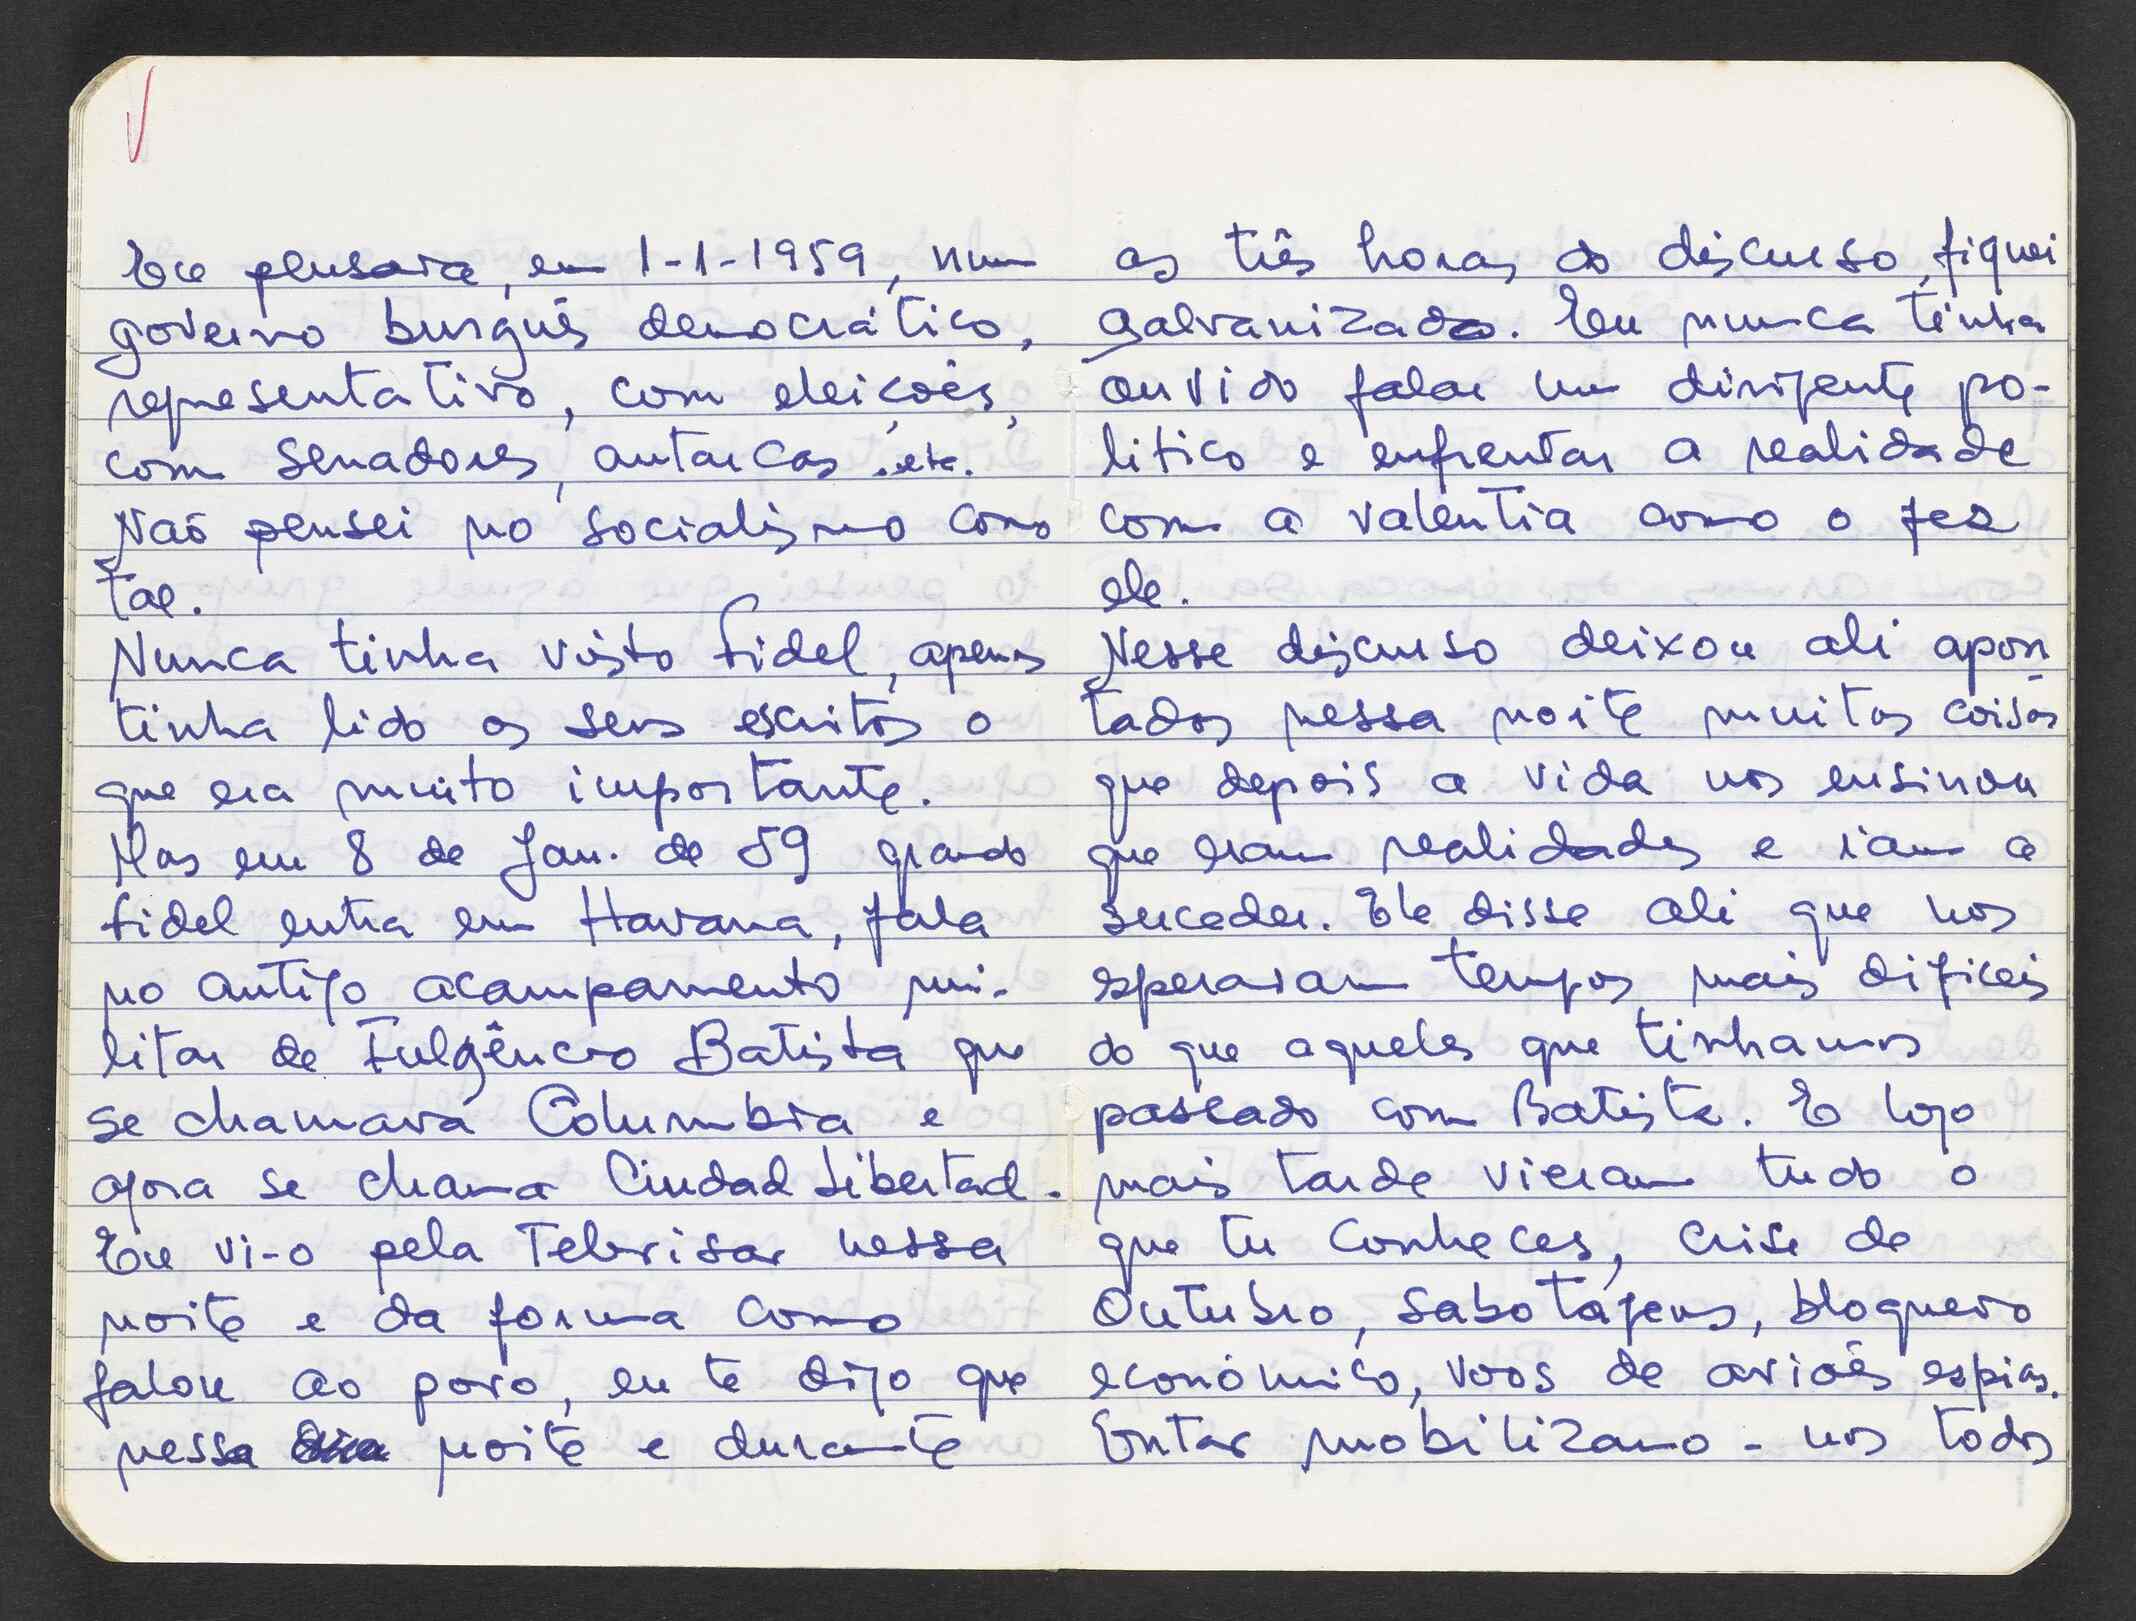 Eu pensava, em 1-1-1959, num
governo burguês democrático,
representativo, com eleições,
com senadores, autarcas etc.
Não pensei no socialismo como
tal.
Nunca tinha visto Fidel, apenas
tinha lido os seus escritos o
que era muito importante.
Mas em 8 de Jan. de 59 quando
Fidel entra em Havana, fala
no antigo acampamento mi-
litar de Fulgêncio Batista que
se chamava Columbia e
agora se chama Ciudad Libertad.
Eu vi-o pela Televisão nessa
noite e da forma como
falou ao povo, eu te digo que
nessa noite e durante
as três horas do discurso, fiquei
galvanizado. Eu nunca tinha
ouvido falar um dirigente po-
litico e enfrentar a realidade
com a valentia como o fez
ele.
Nesse discurso deixou ali apon-
tados nessa noite muitas coisas
que depois a vida nos ensinou
que eram realidades e iam a
suceder. Ele disse ali que nos
esperavam tempos mais dificeis
do que aqueles que tinhamos
passado com Batista. E logo
mais tarde vieram tudo o
que tu conheces, crise de
Outubro, sabotagens, bloqueio
económico, voos de aviões espias.
Então mobilizamo-nos todos